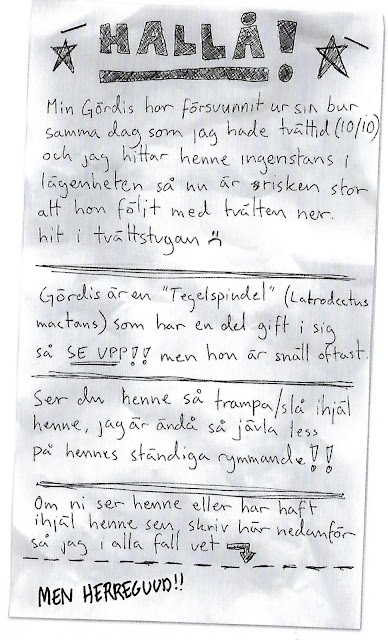 HALLÅ!
Min Gördis har försvunnit ur sin bur
samma dag som jag hade tvättid (10/10)
och jag hittar henne ingenstans i
lägenheten så nu är risken stor
att hon följt med tvätten ner
hit i tvättstugan :(
Gördis är en "Tegelspindel" (Latrodectus
mactans) som har en del gift i sig
så SE UPP!! men hon är snäll oftast.
Ser du henne så trampa/slå ihjäl
henne, jag är ändå så jävla less
på hennes ständiga rymmande!!
Om ni ser henne eller har haft
ihjäl henne sen, skriv här nedanför
så jag i alla fall vet
MEN HERREGUUD!!